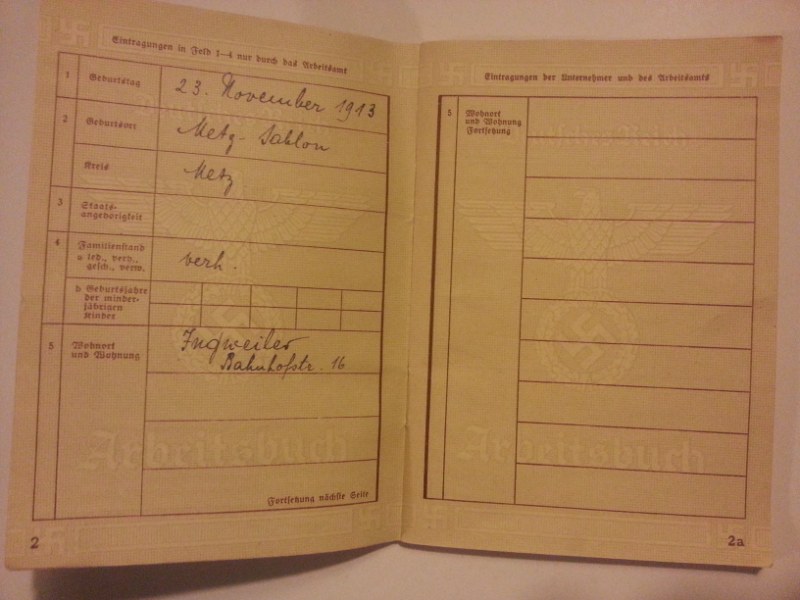 Eintragungen in Feld 1–4 nur durch das Arbeitsamt
1 Geburtstag 23. November 1913
2 Geburtsort Metz-Sablon
Kreis Metz
3 Staats-
angehörigkeit
4 Familienstand
a led., verh.,
gesch., verw. verh.
b Geburtsjahre
der minder-
jährigen
Kinder
5 Wohnort
und Wohnung
Ingweiler
Bahnhofstr. 16
Arbeitsbuch
Fortsetzung nächste Seite
2
Eintragungen der Unternehmer und des Arbeitsamts
5 Wohnort
und Wohnung
Fortsetzung
Arbeitsbuch
2a